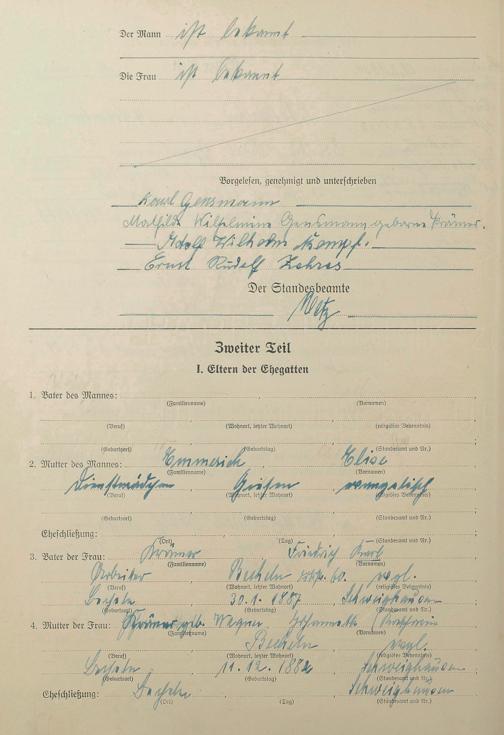 Der Mann ist bekannt
Die Frau ist bekannt
Vorgelesen, genehmigt und unterschrieben
Karl Gensmann
Mathilde Wilhelmine Gensmann geborene Krämer.
Adolf Wilhelm Kempf.
Ernst Rudolf Zehres
Der Standesbeamte
Metz
Zweiter Teil
I. Eltern der Ehegatten
1. Vater des Mannes:
(Familienname) (Vornamen)
(Beruf) (Wohnort, letzter Wohnort) (religiöses Bekenntnis)
(Geburtsort) (Geburtstag) (Standesamt und Nr.)
2. Mutter des Mannes: Emmerich Elise
(Familienname) (Vornamen)
Dienstmädchen Gießen evangelisch
(Beruf) (Wohnort, letzter Wohnort)
(Geburtsort) (Geburtstag) (Standesamt und Nr.)
Eheschließung:
(Ort) (Tag) (Standesamt und Nr.)
3. Vater der Frau: Krämer Friedrich Karl
(Familienname) (Vornamen)
Arbeiter Becheln evgl.
(Beruf) (Wohnort, letzter Wohnort)
Becheln 30. 1. 1887 Schweighausen
(Geburtsort) (Geburtstag) (Standesamt und Nr.)
4. Mutter der Frau: Krämer geb. Johannette
(Familienname) (Vornamen)
Becheln evgl.
(Beruf) (Wohnort, letzter Wohnort) (religiöses Bekenntnis)
Becheln 11. 12. 1882 Schweighausen
(Geburtsort) (Geburtstag) (Standesamt und Nr.)
Eheschließung: Becheln Schweighausen
(Ort) (Tag) (Standesamt und Nr.)